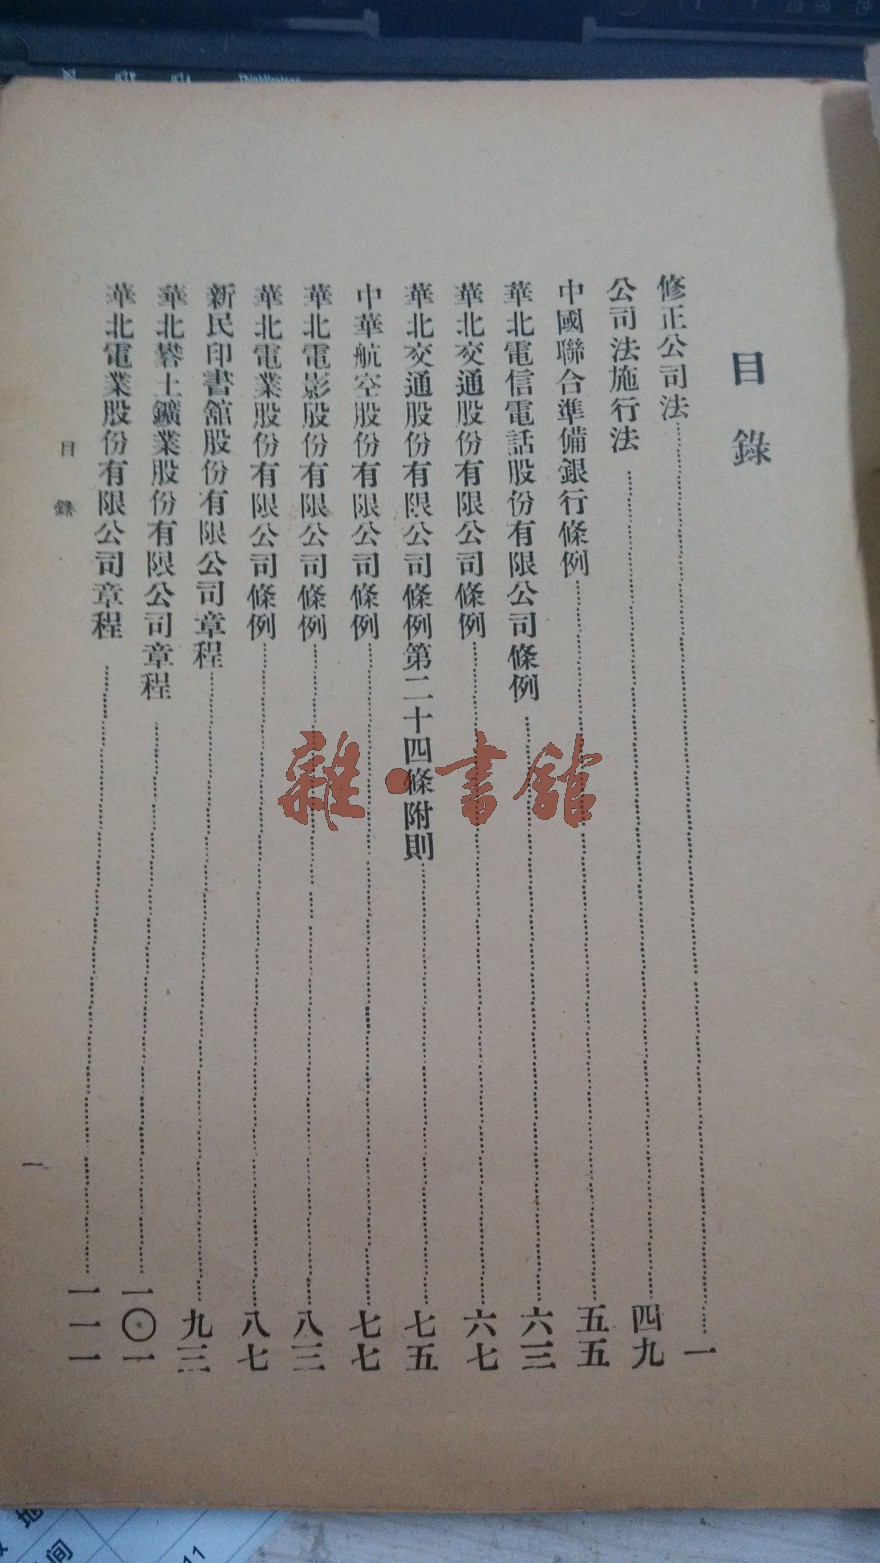 目錄
修正公司法……一
公司法施行法……四九
中國聯合準備銀行條例……五五
華北電信電話股份有限公司條例……六三
華北交通股份有限公司條例……六七
華北交通股份有限公司條例第二十四條附則……七五
中華航空股份有限公司條例……七七
華北電影股份有限公司條例……八三
華北電業股份有限公司條例……八七
新民印書館股份有限公司章程……九三
華北礬土鑛業股份有限公司章程……一〇一
華北電業股份有限公司章程……一一一
目錄
一
雜·書館
地
间
11